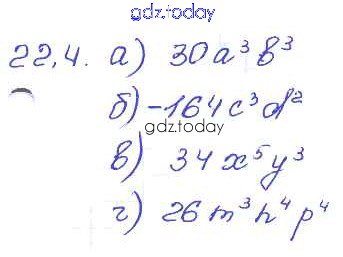 gdz.today
22.4. а) 30a³b³
б) -164c³d²
gdz.today
в) 34x⁵y³
г) 26m³n⁴p⁴
gdz.today